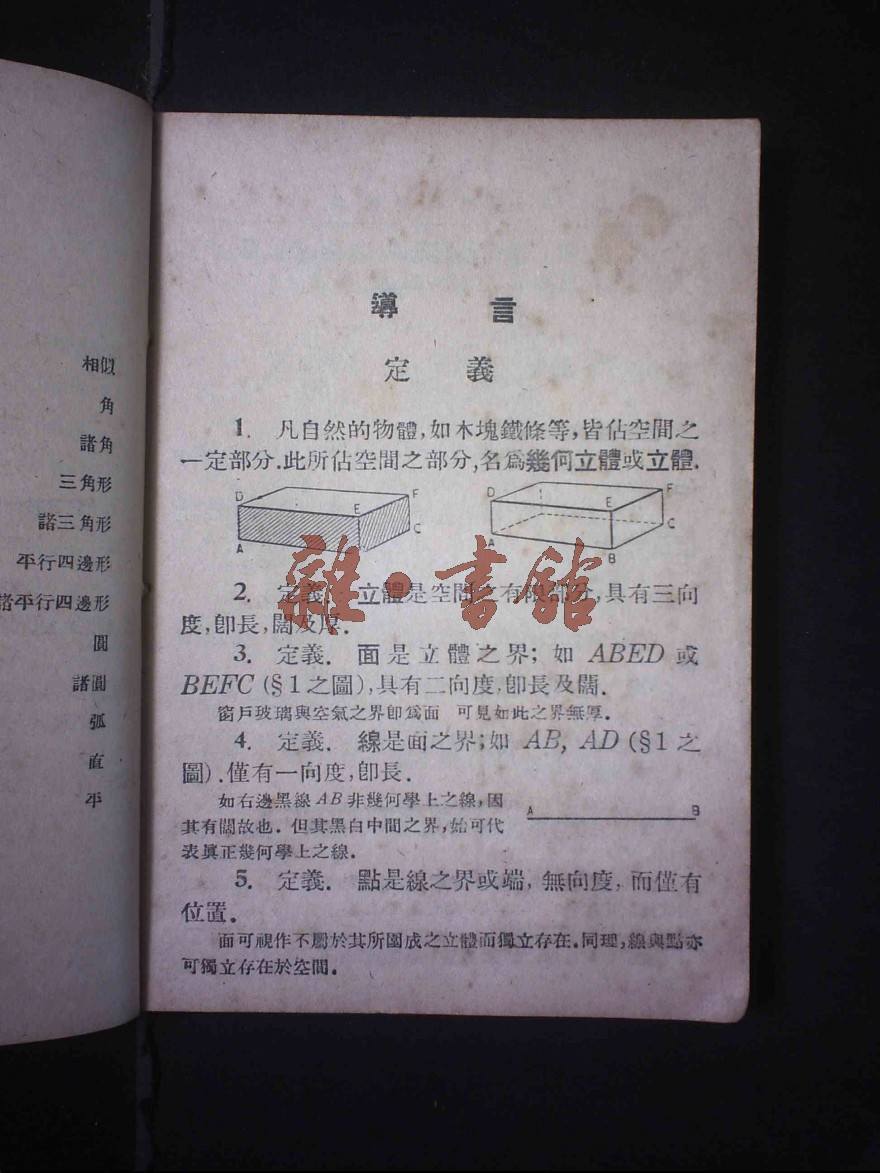 相似
角
諸角
三角形
諸三角形
平行四邊形
諸平行四邊形
圓
諸圓
弧
直
平
導言
定義
1. 凡自然的物體,如木塊鐵條等,皆佔空間之
一定部分.此所佔空間之部分,名爲幾何立體或立體.
D E F A C
D E F A B C
2. 定義. 立體是空間之有限部分,具有三向
度,卽長,闊及厚.
3. 定義. 面是立體之界; 如 ABED 或
BEFC (§1之圖),具有二向度,卽長及闊.
窗戶玻璃與空氣之界卽爲面 可見如此之界無厚.
4. 定義. 線是面之界;如 AB, AD (§1 之
圖).僅有一向度,卽長.
如右邊黑線 AB 非幾何學上之線,因
其有闊故也. 但其黑白中間之界,始可代
表眞正幾何學上之線.
A B
5. 定義. 點是線之界或端, 無向度, 而僅有
位置.
面可視作不屬於其所圍成之立體而獨立存在.同理,線與點亦
可獨立存在於空間.
雜·書館